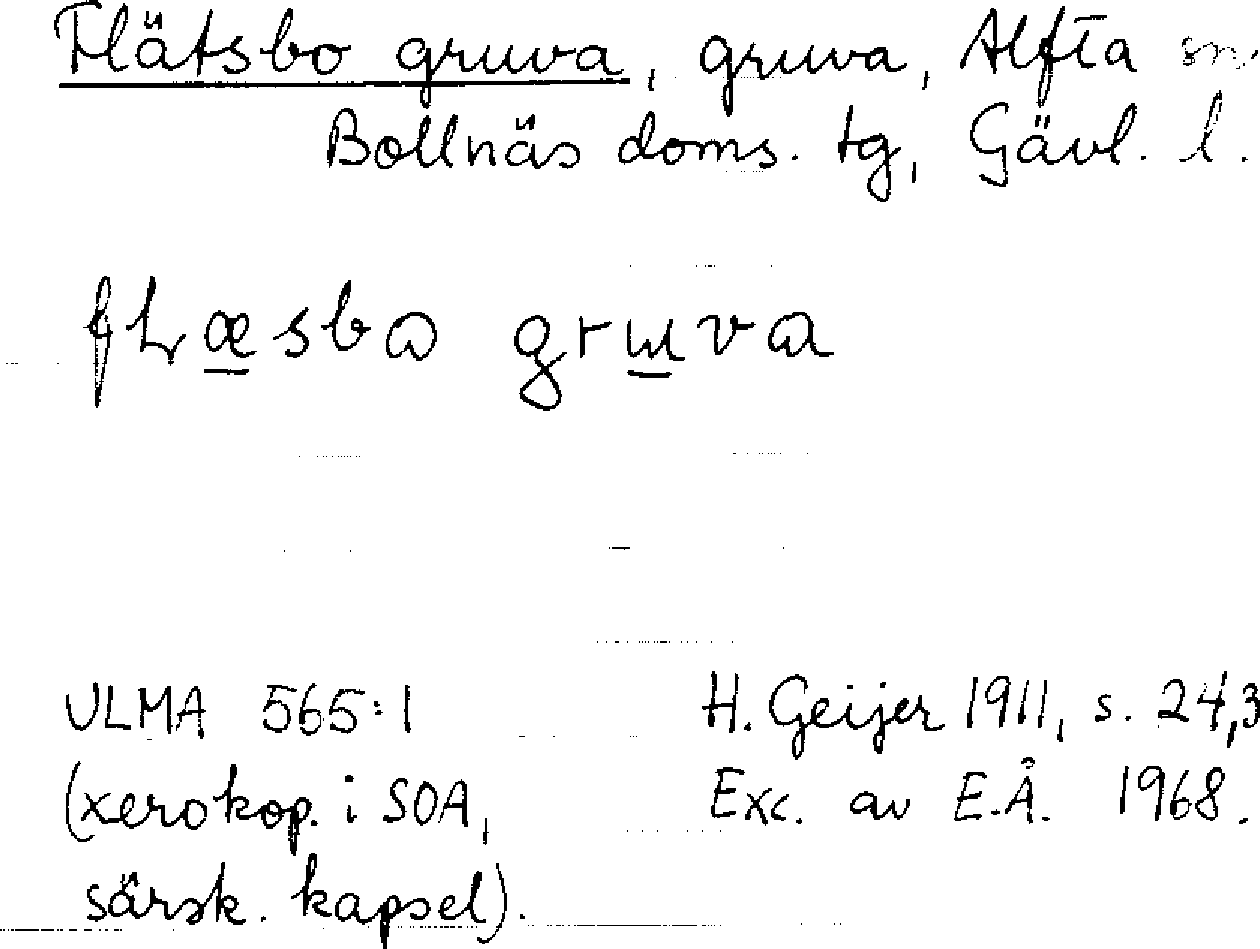 Flätsbo gruva, gruva, Alfta sn
Bollnäs doms. tg, Gävl. l.
fLæsbo grɯva
ULMA 565:1
(xerokop. i SOA,
särsk. kapsel).
H. Geijer 1911, s. 24,3
Exc. av E.Å. 1968.